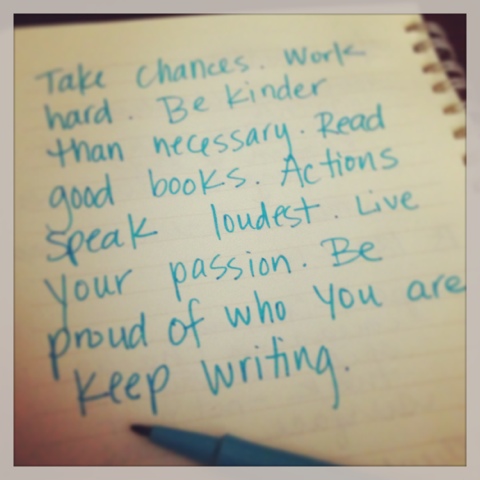 Take Chances. Work
hard. Be kinder
than necessary. Read
good books. Actions
speak loudest. Live
your passion. Be
proud of who you are
Keep writing.